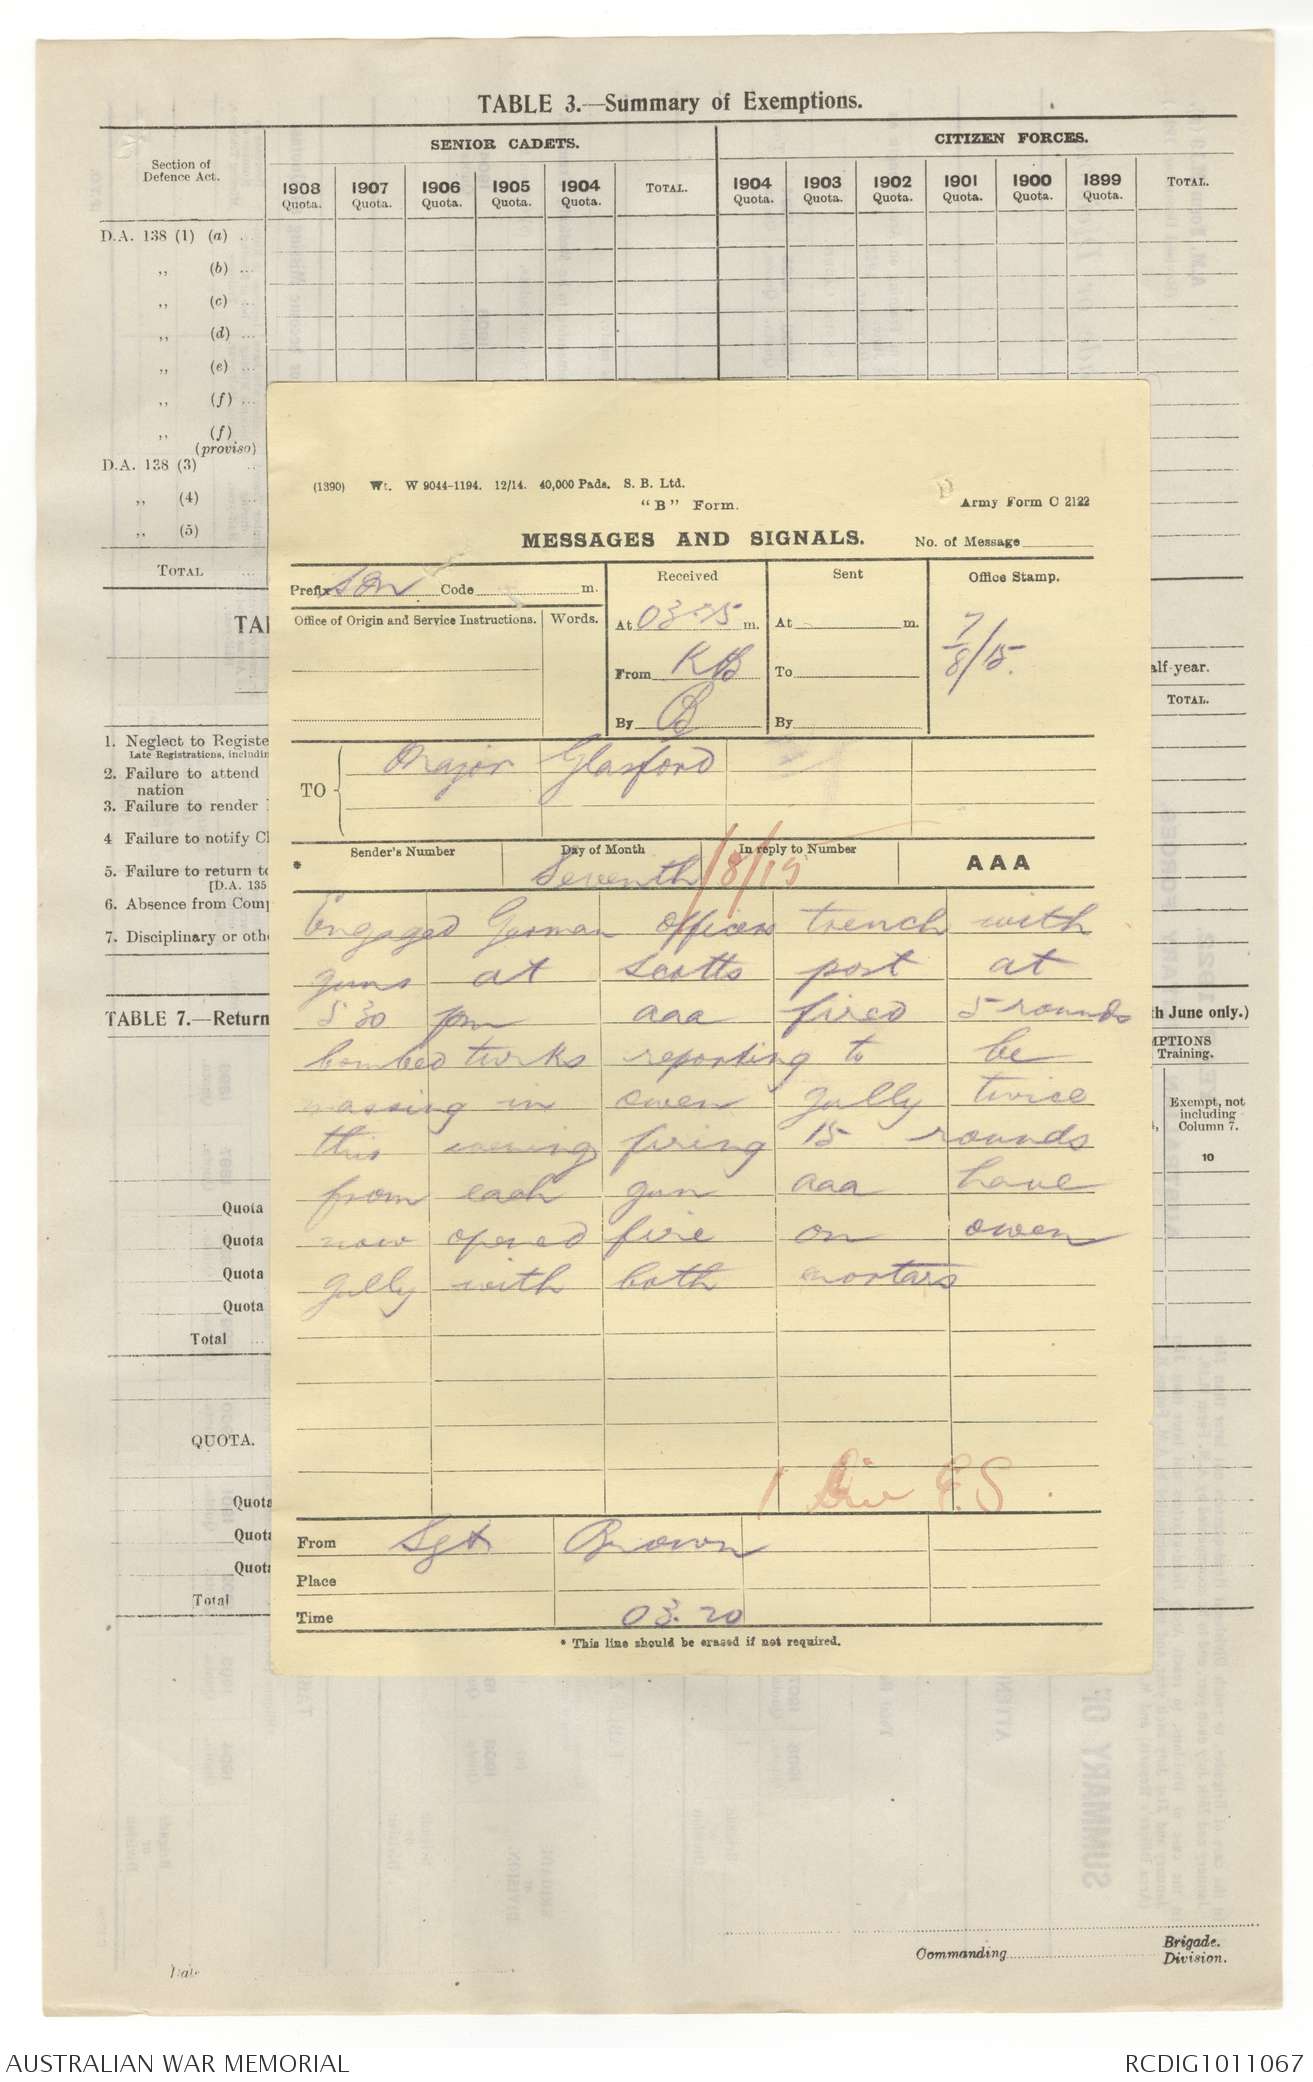 TABLE 3.—Summary of Exemptions.
Section of Defence Act.
SENIOR CADETS.
CITIZEN FORCES.
1908 Quota. 1907 Quota. 1906 Quota. 1905 Quota. 1904 Quota. TOTAL. 1904 Quota. 1903 Quota. 1902 Quota. 1901 Quota. 1900 Quota. 1899 Quota. TOTAL.
D.A. 138 (1) (a) ...
,, (b) ...
,, (c) ...
,, (d) ...
,, (e) ...
,, (f) ...
,, (f) (proviso)
D.A. 138 (3) ..
,, (4) ...
,, (5) ...
TOTAL ...
TAB
alf-year.
TOTAL.
1. Neglect to Registe
Late Registrations, includin
2. Failure to attend
nation
3. Failure to render
4 Failure to notify C
5. Failure to return to
[D.A. 135
6. Absence from Comp
7. Disciplinary or othe
TABLE 7.—Return
th June only.)
MPTIONS
Training.
Exempt, not including Column 7.
10
Quota
Quota
Quota
Quota
Total ...
QUOTA.
Quota
Quota
Quota
Total
(1390) Wt. W 9044-1194. 12/14. 40,000 Pads. S. B. Ltd.
"B" Form.
Army Form C 2122
MESSAGES AND SIGNALS.
No. of Message
Prefix Son Code m.
Received
Sent
Office Stamp.
Office of Origin and Service Instructions.
Words.
At m.
At m.
7/8/15.
From KB
To
By B
By
TO
Major Glasford
Sender's Number
Day of Month
In reply to Number
AAA
* Seventh /8/15
Engaged German officers trench with
guns at Scotts post at
5 30 pm aaa fired 5 rounds
bombed turks reporting to be
massing in owen gully twice
this evening firing 15 rounds
from each gun aaa have
now opened fire on owen
gully with both mortars
1 Div G.S.
From Sgt Brown
Place
Time 03.20
* This line should be erased if not required.
Commanding
Brigade.
Division.
Date
AUSTRALIAN WAR MEMORIAL
RCDIG1011067